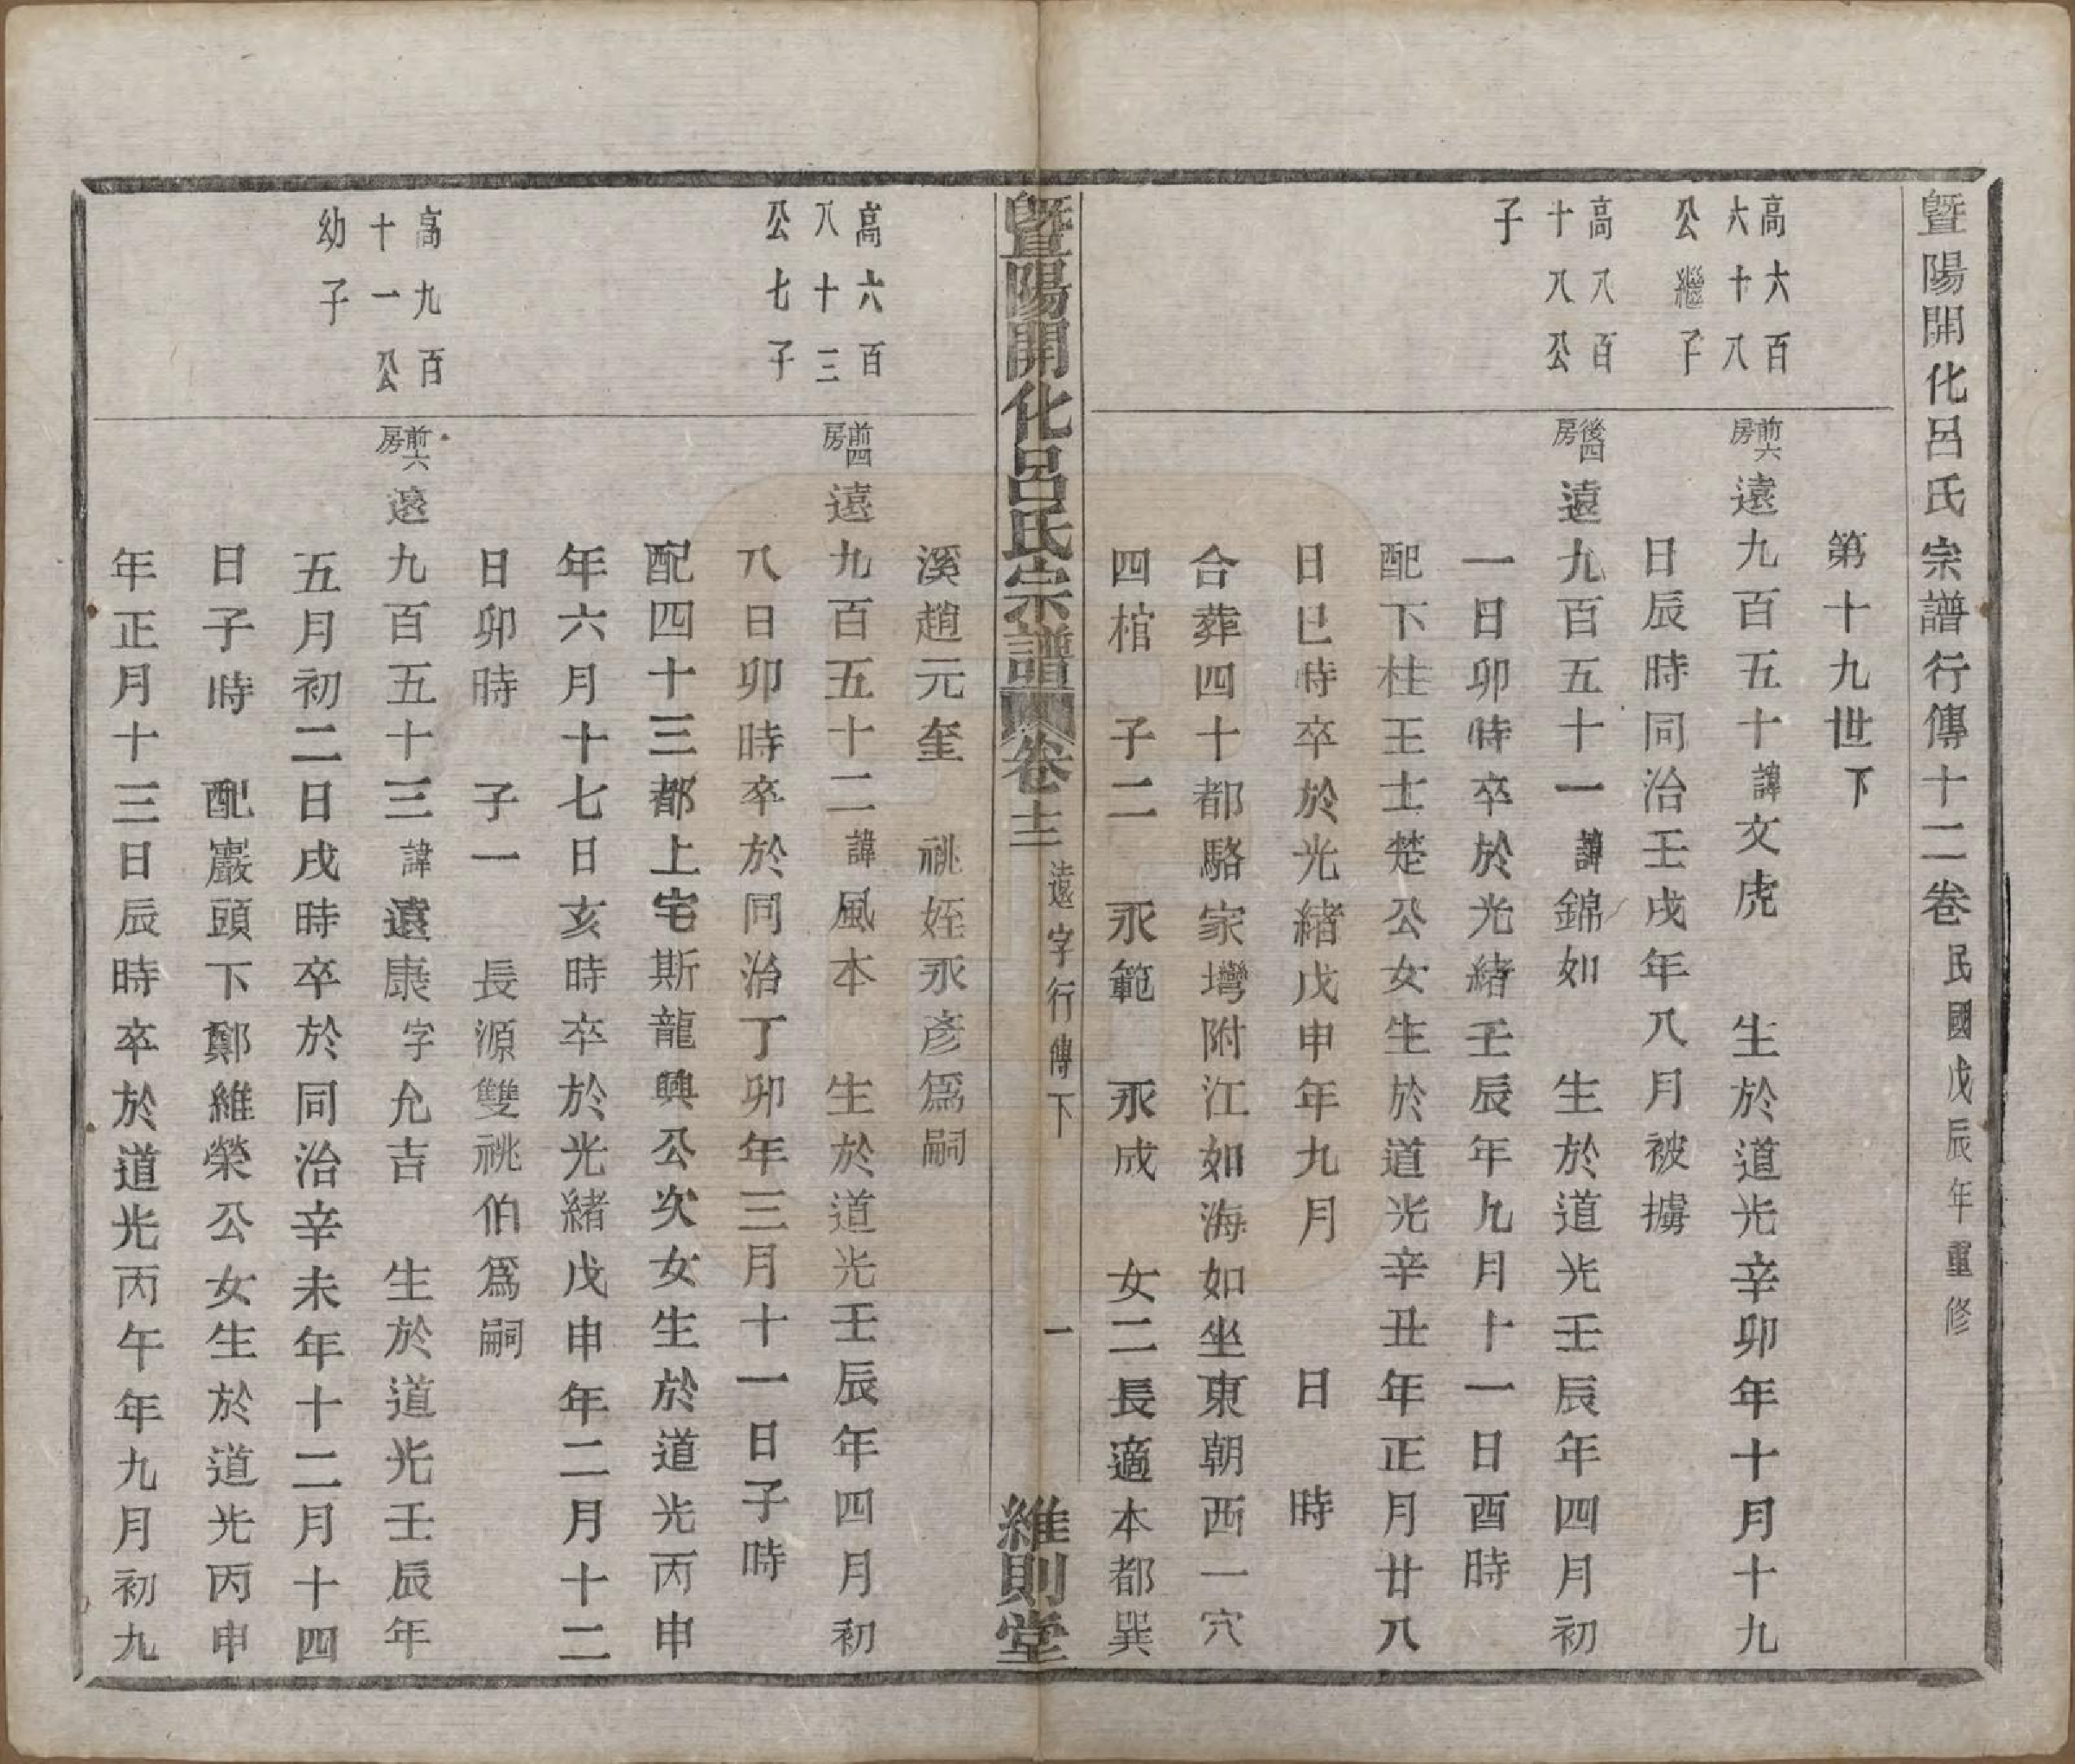 暨陽開化呂氏宗譜行傳十二卷民國戊辰年重修
第十九世下
高六百
六十八
公繼子
前六房遠九百五十諱文虎 生於道光辛卯年十月十九
日辰時同治壬戌年八月被擄
高八百
十八公
子
後四房遠九百五十一諱錦如 生於道光壬辰年四月初
一日卯時卒於光緒壬辰年九月十一日酉時
配下柱王士楚公女生於道光辛丑年正月廿八
日巳時卒於光緒戊申年九月 日 時
合葬四十都駱家塆附江如海如坐東朝西一穴
四棺 子二 永範 永成 女二長適本都巽
暨陽開化呂氏宗譜 卷十二 遠字行傳下 一 維則堂
溪趙元奎 祧姪永彥為嗣
高六百
八十三
公七子
前四房遠九百五十二諱風本 生於道光壬辰年四月初
八日卯時卒於同治丁卯年三月十一日子時
配四十三都上宅斯龍興公次女生於道光丙申
年六月十七日亥時卒於光緒戊申年二月十二
日卯時 子一 長源雙祧伯為嗣
高九百
十一公
幼子
前六房遠九百五十三諱遠康字允吉 生於道光壬辰年
五月初二日戌時卒於同治辛未年十二月十四
日子時 配巖頭下鄭維榮公女生於道光丙申
年正月十三日辰時卒於道光丙午年九月初九